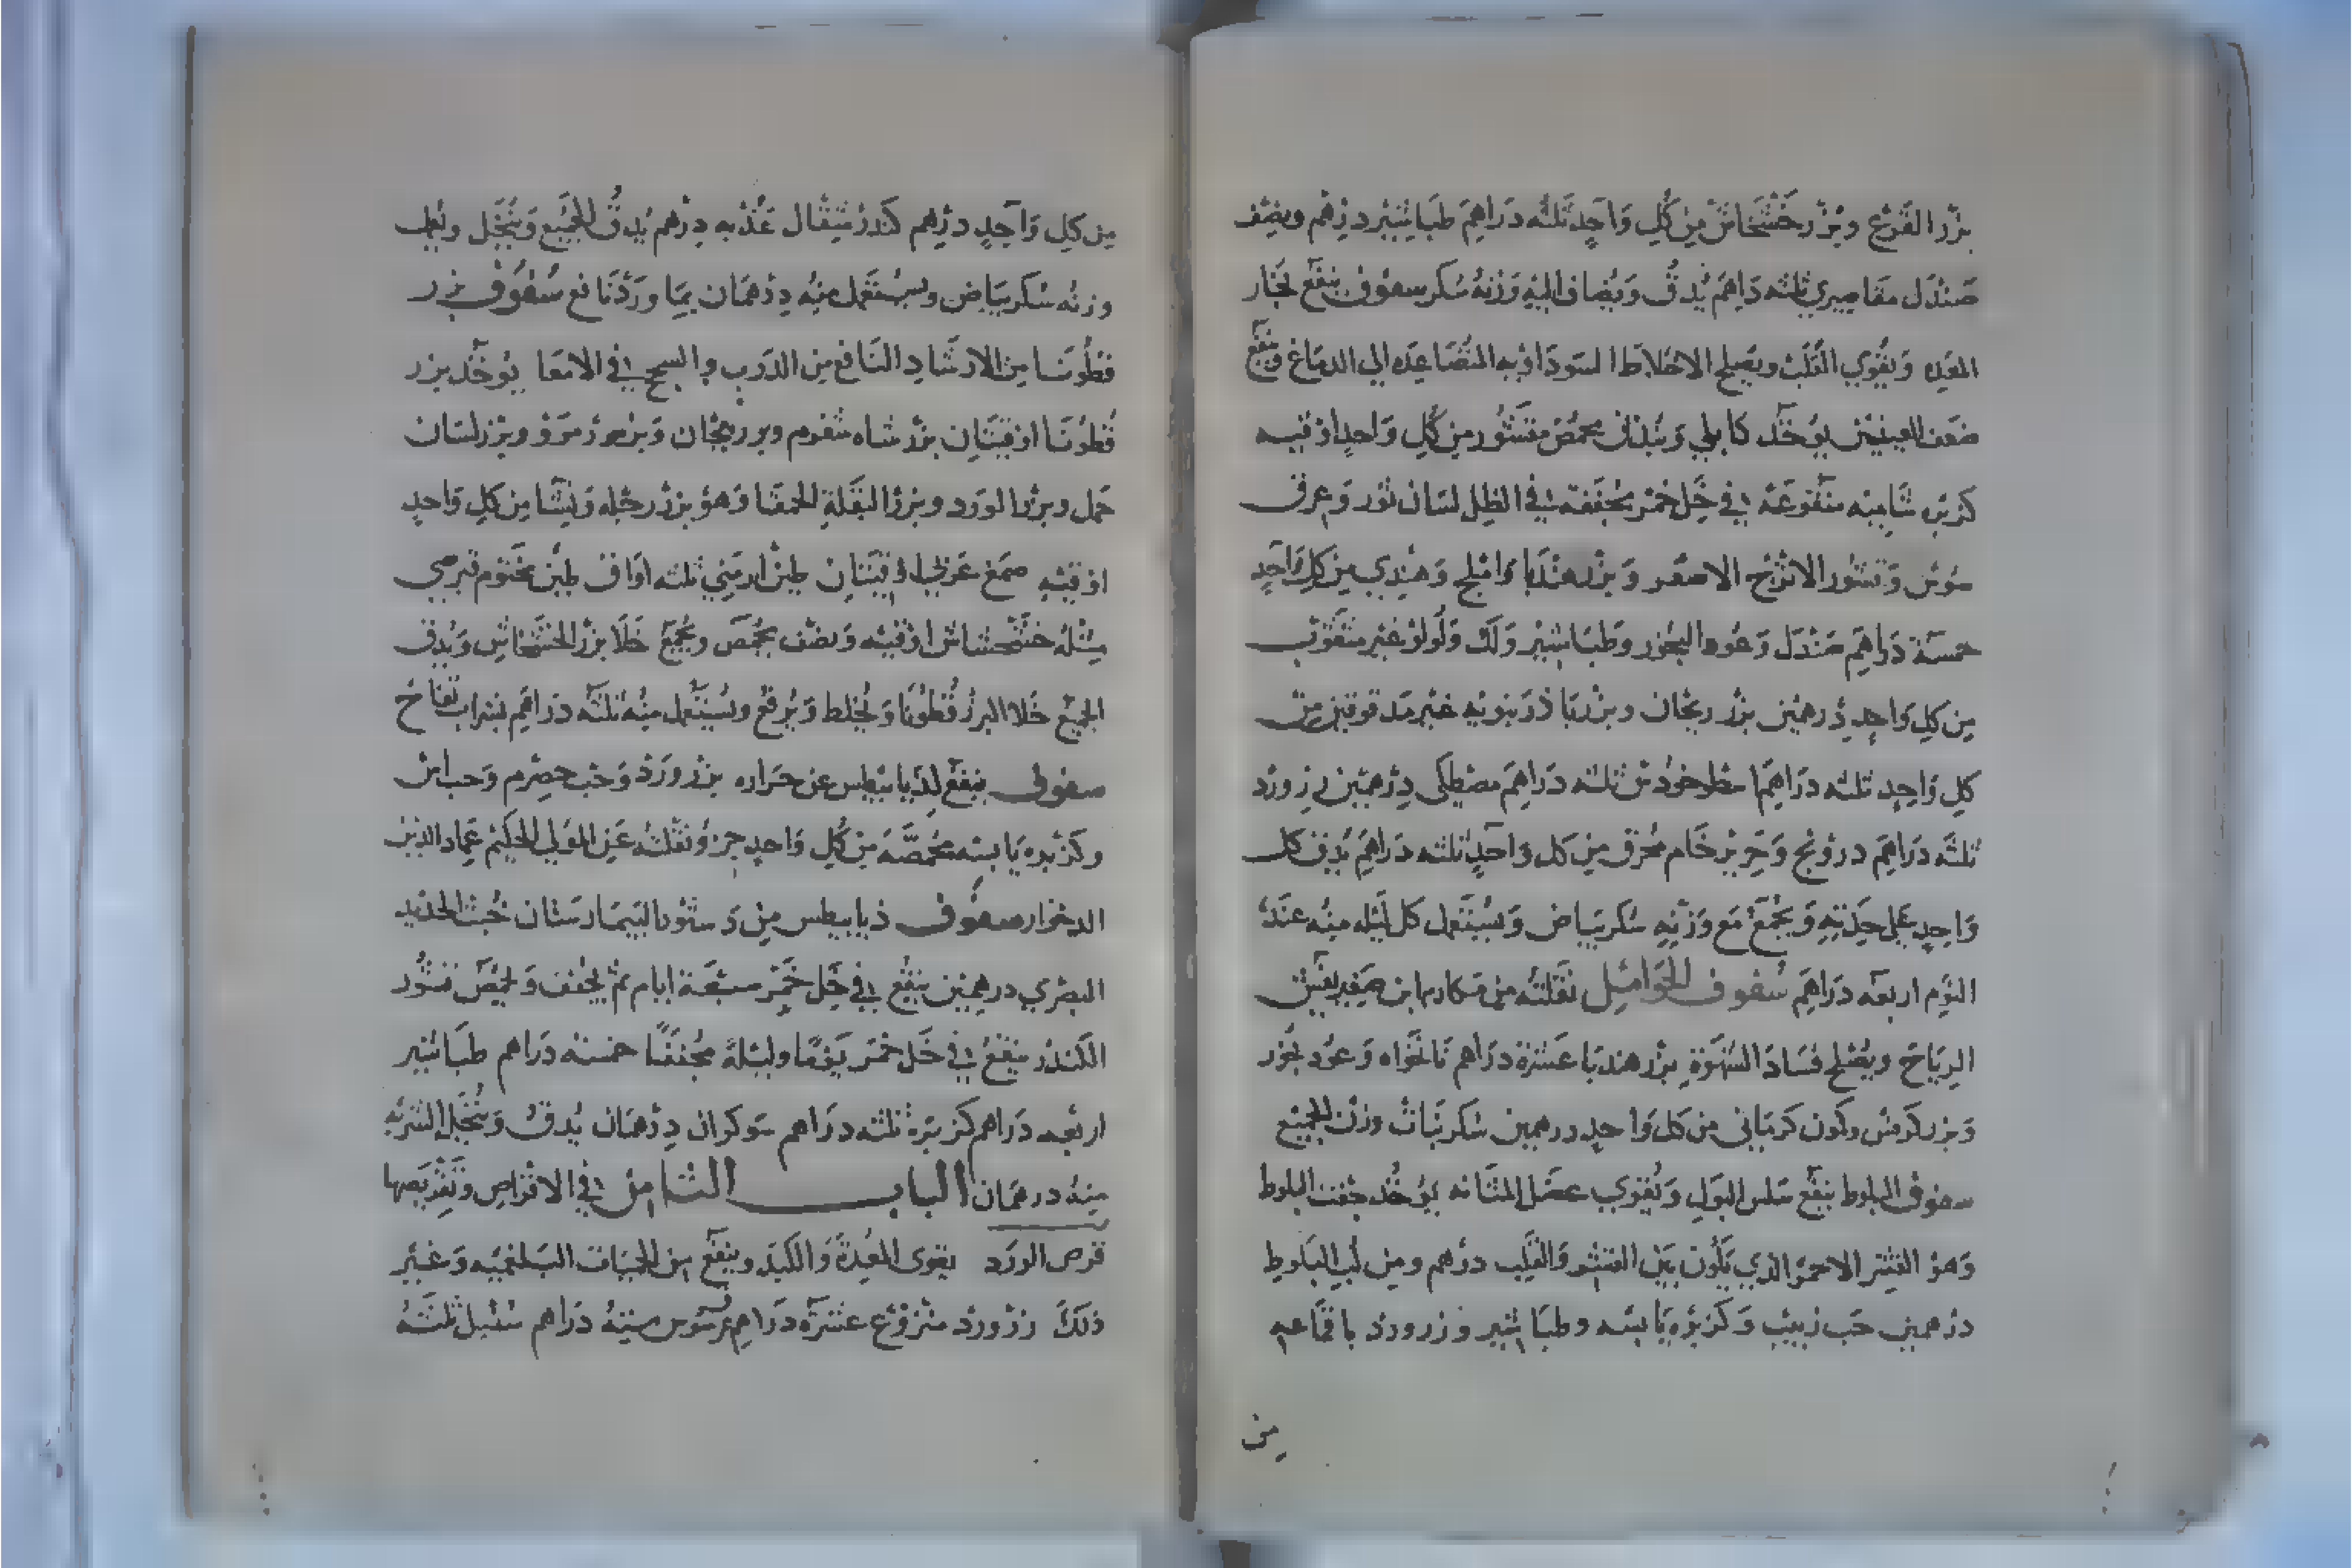 بزر القرع وبزر خشخاش من كل واحد ثلثه دراهم طباشير درهم ونصف
صندل مقاصيري ثلثه دراهم يدق ويضاف اليه وزنه سكر سفوف ينفع بخار
المعده ويقوي القلب ويصلح الاخلاط السوداويه المتصاعده الي الدماغ وينفع
ضعف العينين يوخذ كابلي وبندق محمص مقشور من كل واحد اوقيه
كزبره شاميه منقوعه في خل خمر مجففه في الظل لسان ثور وعرق
سوس وقشور الاترج الاصفر وبزر هندبا واملج وهندي من كل واحد
خمسة دراهم صندل وعود البخور وطباشير ولك ولولو غير مثقوب
من كل واحد درهمين بزر ريحان وبزر باذرنبويه غير مدقوقين من
كل واحد ثلثه دراهم اسطوخودس ثلثه دراهم مصطكى درهمين زر ورد
ثلثه دراهم درونج وحرير خام محرق من كل واحد ثلثه دراهم يدق كل
واحد على حدته ويجمع مع وزنه سكر بياض ويستعمل كل ليله منه عند
النوم اربعه دراهم سفوف الحوامل نقلته من مكارم ابن صغير يفش
الرياح ويصلح فساد الشهوة بزر هندبا عشرة دراهم نانخواه وعود بخور
وبزر كرفس وكمون كرماني من كل واحد درهمين سكر نبات وزن الجميع
سفوف البلوط ينفع سلس البول ويقوي عضل المثانه يوخذ جفت البلوط
وهو القشر الاحمر الذي يكون بين القشر والقلب درهم ومن لب البلوط
درهمين حب زبيب وكزبره يابسه وطباشير وزر ورد باقماعه
من
من كل واحد درهم كندر مثقال عذبه درهم يدق الجميع وينخل
وزنه سكر بياض ويستعمل منه درهمان بما ورد نافع سفوف بزر
قطونا من الارشاد النافع من الذرب والسحج في الامعا يوخذ بزر
قطونا اوقيتان بزر شاه سفرم وبزر ريحان وبزر مرو وبزر لسان
حمل وبزر الورد وبزر البقلة الحمقا وهو بزر رجله ونشا من كل واحد
اوقيه صمغ عربي اوقيتان طين ارمني ثلثه اواق طين مختوم قبرصي
مثله خشخاش اوقيه ونصف يحمص ويجمع خلا بزر الخشخاش ويدق
الجميع خلا البزر قطونا ويخلط ويرفع ويستعمل منه ثلثه دراهم بشراب تفاح
سفوف ينفع لذيابيطس عن حراره بزر ورد وحب حصرم وحب اس
وكزبره يابسه محمصه من كل واحد جزو نقلته عن المولي الحكيم عماد الدين
الدخوار سفوف ذيابيطس من دستور البيمارستان خبث الحديد
البصري درهمين ينقع في خل خمر سبعة ايام ثم يجفف ويحمص قشور
الكندر ينقع في خل خمر يوما وليلة مجففا خمسه دراهم طباشير
اربعه دراهم كزبره ثلثه دراهم سوكران درهمان يدق وينخل الشربه
منه درهمان الباب الثامن في الاقراص وتقريصها
قرص الورد يقوى المعدة والكبد وينفع من الحميات البلغميه وغير
ذلك زر ورد منزوع عشره دراهم سوس سته دراهم سنبل ثلثه